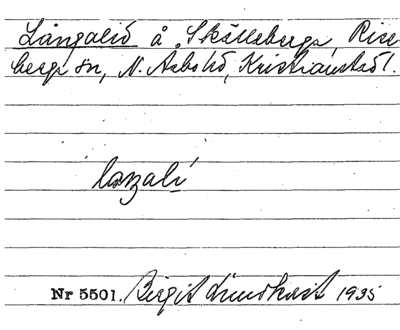 Långalid å Skälleberga, Rise
berga sn, N. Åsbo hd, Kristianstads l.
laŋalí
Nr 5501. Birgit Lundkvist 1935